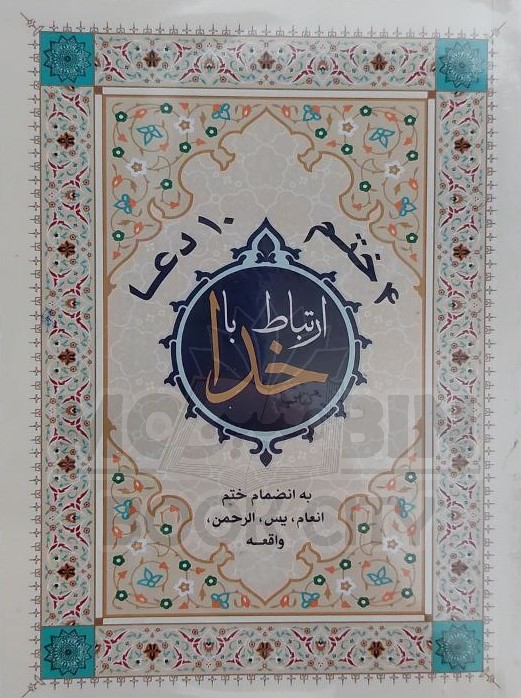 ۴ ختم ۱۰ دعا
ارتباط با
خدا
به انضمام ختم
انعام، یس، الرحمن،
واقعه
BOOK CITY